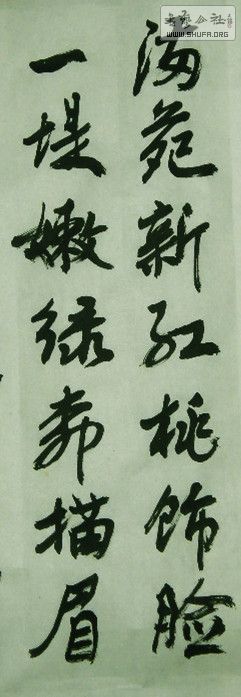 满苑新红桃饰脸
一堤嫩绿柳描眉
书艺公社
WWW.SHUFA.ORG